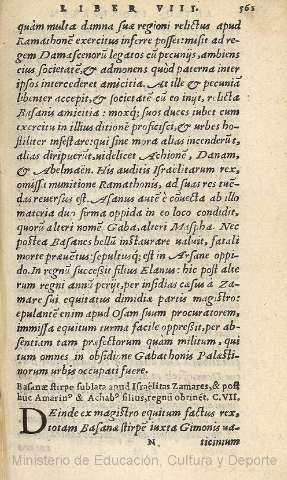 LIBER VIII. 562
quàm multa damna suæ regioni relictus apud
Ramathonẽ exercitus inferre posset: misit ad re-
gem Damascenorũ legatos cũ pecunijs, ambiens
eius societatẽ, & admonens quòd paterna inter
ipsos intercederet amicitia. At ille & pecuniã
libenter accepit, & societatẽ cũ eo inijt, relicta
Basanis amicitia: moxq; suos duces iubet cum
exercitu in illius ditionẽ proficisci, & urbes ho-
stiliter infestare: qui sine mora alias incenderũt,
alias diripuerũt, uidelicet Achionẽ, Danam,
& Abelmaën. His auditis Israëlitarum rex,
omissa munitione Ramathonis, ad suas res tuẽ-
das reuersus est. Asanus autẽ è conuecta ab illo
materia duo firma oppida in eo loco condidit,
quorũ alteri nomẽ Gaba, alteri Maspha. Nec
postea Basanes bellũ instaurare ualuit, fatali
morte præuentus: sepultusq; est in Arsane oppi-
do. In regnũ successit filius Elanus: hic post alte-
rum regni annũ perijt, per insidias cæsus à Za-
mare sui equitatus dimidiæ partis magistro:
epulantẽ enim apud Osam suum procuratorem,
immissa equitum turma facile oppressit, per ab-
sentiam tam præfectorum quàm militum, qui
tum omnes in obsidione Gabathonis Palæsti-
norum urbis occupati fuere.
Basanæ stirpe sublata apud Israëlitas Zamares, & post
hũc Amarinꝰ & Achabꝰ filius, regnũ obtinẽt. C. VII.
Deinde ex magistro equitum factus rex,
totam Basanæ stirpẽ iuxta Gimonis ua-
N ticinium
Ministerio de Educación, Cultura y Deporte